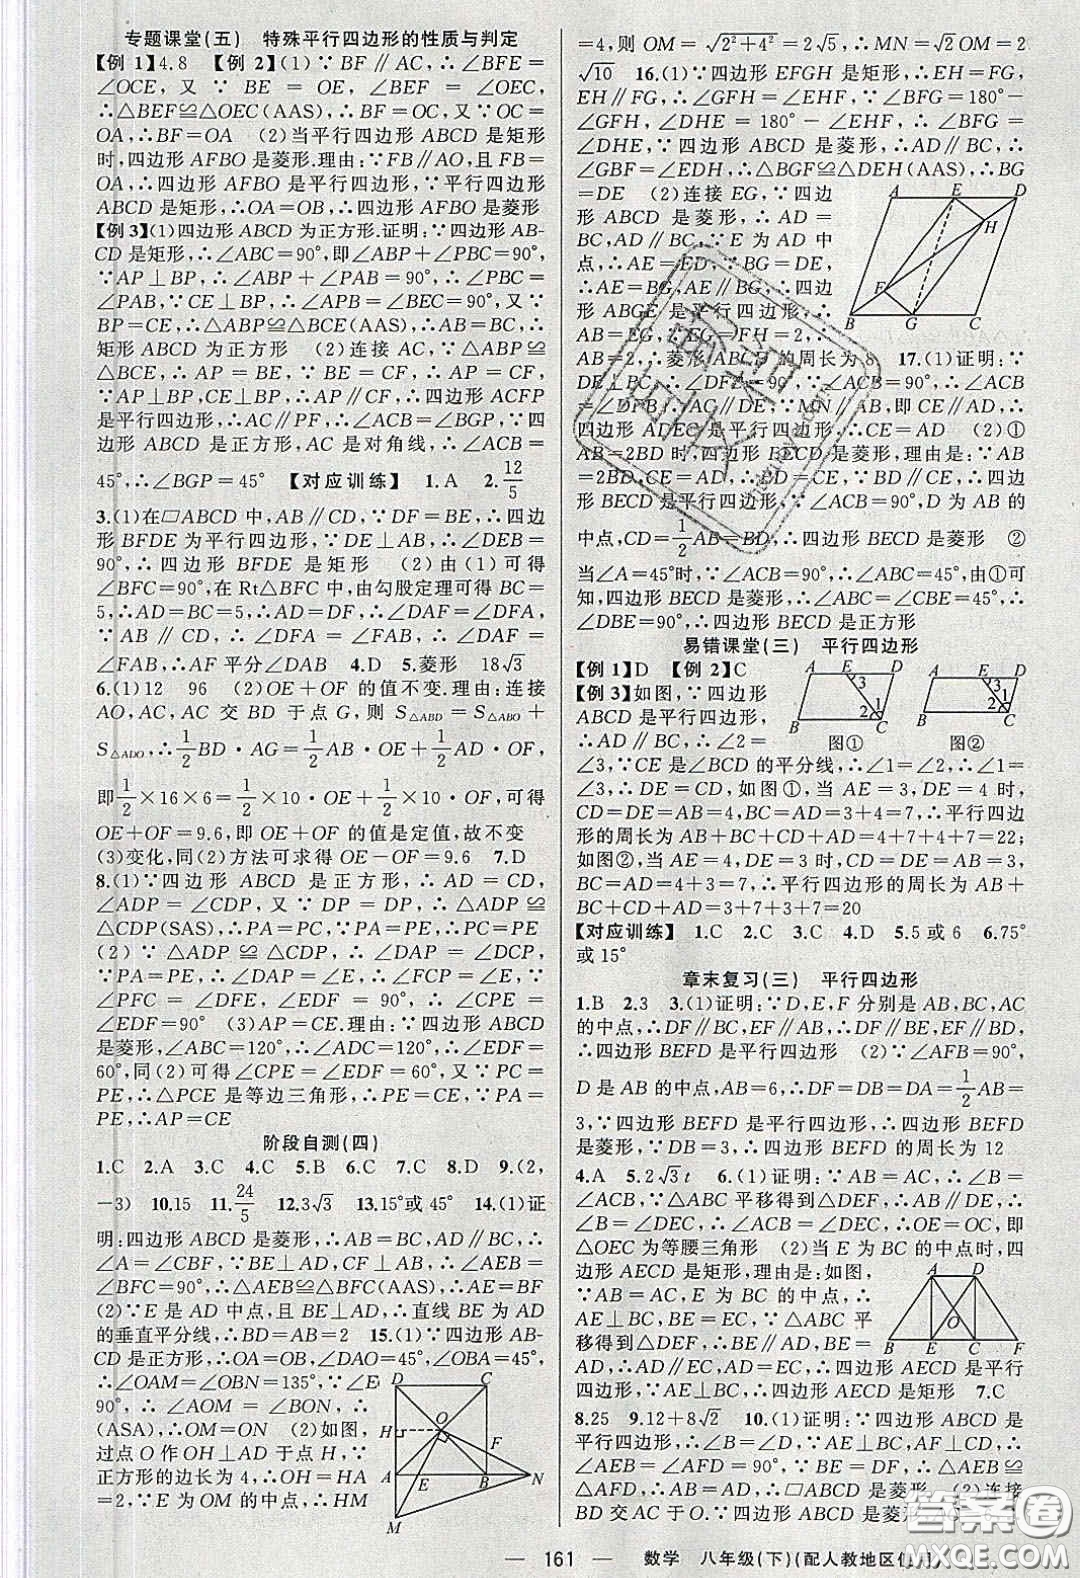 专题课堂(五)　特殊平行四边形的性质与判定
【例 1】4.8　【例 2】(1)∵BF∥AC,∴∠BFE=
∠OCE,又∵BE=OE,∠BEF=∠OEC,
∴△BEF≌△OEC(AAS),∴BF=OC,又∵OC=
OA,∴BF=OA　(2)当平行四边形 ABCD 是矩形
时,四边形 AFBO 是菱形.理由:∵FB∥AO,且 FB=
OA,∴四边形 AFBO 是平行四边形,∵平行四边形
ABCD 是矩形,∴OA=OB,∴四边形 AFBO 是菱形
【例 3】(1)四边形 ABCD 为正方形.证明:∵四边形 AB-
CD 是矩形,∴∠ABC=90°,即∠ABP+∠PBC=90°,
∵AP⊥BP,∴∠ABP+∠PAB=90°,∴∠PBC=
∠PAB,∵CE⊥BP,∴∠APB=∠BEC=90°,又∵
BP=CE,∴△ABP≌△BCE(AAS),∴AB=BC,∴
矩形 ABCD 为正方形　(2)连接 AC,∵△ABP≌
△BCE,∴AP=BE,∵BE=CF,∴AP=CF,∵
AP⊥BP,CE⊥BP,∴AP∥CF,∴四边形 ACFP
是平行四边形,∴AC∥PF,∴∠ACB=∠BGP,∵四
边形 ABCD 是正方形,AC 是对角线,∴∠ACB=
45°,∴∠BGP=45°　【对应训练】　1.A　2.12/5
3.(1)在▱ABCD 中,AB∥CD,∵DF=BE,∴四边
形 BFDE 为平行四边形,∵DE⊥AB,∴∠DEB=
90°,∴四边形 BFDE 是矩形　(2)由(1)可得
∠BFC=90°,在 Rt△BFC 中,由勾股定理可得 BC=
5,∴AD=BC=5,∴AD=DF,∴∠DAF=∠DFA,
∵AB∥CD,∴∠DFA=∠FAB,∴∠DAF=
∠FAB,∴AF 平分∠DAB　4.D　5.菱形　18√3
6.(1)12　96　(2)OE+OF 的值不变.理由:连接
AO,AC,AC 交 BD 于点 G,则 S△ABD=S△ABO+
S△ADO,∴1/2BD·AG=1/2AB·OE+1/2AD·OF,
即1/2×16×6=1/2×10·OE+1/2×10·OF,可得
OE+OF=9.6,即 OE+OF 的值是定值,故不变
(3)变化,同(2)方法可求得 OE-OF=9.6　7.D
8.(1)∵四边形 ABCD 是正方形,∴AD=CD,
∠ADP=∠CDP,又∵DP=DP,∴△ADP≌
△CDP(SAS),∴PA=PC,∵PA=PE,∴PC=PE
(2)∵△ADP≌△CDP,∴∠DAP=∠DCP,
∵PA=PE,∴∠DAP=∠E,∴∠DCP=∠E,∵
∠PFC=∠DFE,∴∠CPF=∠EDF,∴∠CPE=
∠EDF=90°　(3)AP=CE.理由:∵四边形 ABCD
是菱形,∠ABC=120°,∴∠ADC=120°,∴∠EDF=
60°,同(2)可得∠CPE=∠EDF=60°,又∵PC=
PE,∴△PCE 是等边三角形,∴PE=CE,∵PA=
PE,∴AP=CE
阶段自测(四)
1.C　2.A　3.C　4.C　5.B　6.C　7.C　8.D　9.(2,
-3)　10.15　11.24/5　12.3√3　13.15°或 45°　14.(1)证
明:四边形 ABCD 是菱形,∴AB=BC,AD∥BC,∴
∠A=∠CBF,∵BE⊥AD,CF⊥AB,∴∠AEB=
∠BFC=90°,∴△AEB≌△BFC(AAS),∴AE=BF
(2)∵E 是 AD 中点,且 BE⊥AD,∴直线 BE 为 AD
的垂直平分线,∴BD=AB=2　15.(1)∵四边形 AB-
CD 是正方形,∴OA=OB,∠DAO=45°,∠OBA=45°,
∴∠OAM=∠OBN=135°,∵∠E
90°,∴∠AOM=∠BON,∴
(ASA),∴OM=ON　(2)如图,
过点 O 作 OH⊥AD 于点 H,∵
正方形的边长为 4,∴OH=HA
=2,∵E 为 OM 的中点,∴HM
D　C　O　H　F　A　E　B　N　M
=4,则 OM=√2²+4²=2√5,∴MN=√2OM=2
√10　16.(1)∵四边形 EFGH 是矩形,∴EH=FG,
EH∥FG,∴∠GFH=∠EHF,∵∠BFG=180°-
∠GFH,∠DHE=180°-∠EHF,∴∠BFG=
∠DHE,∵四边形 ABCD 是菱形,∴AD∥BC,∴
∠GBF=∠EDH,∴△BGF≌△DEH(AAS),∴BG
=DE　(2)连接 EG,∵四边
形 ABCD 是菱形,∴AD=
BC,AD∥BC,∵E 为 AD 中
点,∴AE=ED,∵BG=DE,
∴AE=BG,AE∥BG,∴四边
形 ABGE 是平行四边形,∴
AB=EG,∵EG=FH=2,∴
A　E　D　H　F　B　G　C
AB=2,∴菱形 ABCD 的周长为 8　17.(1)证明:∵
DE⊥BC,∴∠DFB=90°,∵∠ACB=90°,∴∠ACB=
∠DFB,∴AC∥DE,∵MN∥AB,即 CE∥AD,∴
四边形 ADEC 是平行四边形,∴CE=AD　(2)①
AB=2BD 时,四边形 BECD 是菱形,理由是:∵AB
=2BD,CE=AD,∴BD=CE,∵BD∥CE,∴四边
形 BECD 是平行四边形,∵∠ACB=90°,D 为 AB 的
中点,CD=1/2AB=BD,∴四边形 BECD 是菱形　②
当∠A=45°时,∵∠ACB=90°,∴∠ABC=45°,由①可
知,四边形 BECD 是菱形,∴∠ABC=∠CBE=45°,∴
∠DBE=90°,∴四边形 BECD 是正方形
易错课堂(三)　平行四边形
【例 1】D　【例 2】C
【例 3】如图,∵四边形
ABCD 是平行四边形,
∴AD∥BC,∴∠2=
A　E　D　3　1　2　B　C　图①
A　E　D　3　1　2　B　C　图②
∠3,∵CE 是∠BCD 的平分线,∴∠1=∠2,∴∠1=
∠3,∴DE=CD,如图①,当 AE=3,DE=4 时,
CD=DE=AB=4,BC=AD=AE+DE=7,∴平行四边
形的周长为 AB+BC+CD+AD=4+7+4+7=22;
如图②,当 AE=4,DE=3 时,CD=DE=AB=3,
BC=AD=AE+DE=7,∴平行四边形的周长为 AB+
BC+CD+AD=3+7+3+7=20
【对应训练】　1.C　2.C　3.C　4.D　5.5 或 6　6.75°
或 15°
章末复习(三)　平行四边形
1.B　2.3　3.(1)证明:∵D,E,F 分别是 AB,BC,AC
的中点,∴DF∥BC,EF∥AB,∴DF∥BE,EF∥BD,
∴四边形 BEFD 是平行四边形　(2)∵∠AFB=90°,
D 是 AB 的中点,AB=6,∴DF=DB=DA=1/2AB=
3,∵四边形 BEFD 是平行四边形,∴四边形 BEFD
是菱形,∵DB=3,∴四边形 BEFD 的周长为 12
4.A　5.2√3 t　6.(1)证明:∵AB=AC,∴∠B=
∠ACB,∵△ABC 平移得到△DEF,∴AB∥DE,∴
∠B=∠DEC,∴∠ACB=∠DEC,∴OE=OC,即
△OEC 为等腰三角形　(2)当 E 为 BC 的中点时,四
边形 AECD 是矩形,理由是:如图,
∵AB=AC,E 为 BC 的中点,∴
AE⊥BC,BE=EC,∵△ABC 平
移得到△DEF,∴BE∥AD,BE=
A　D　O　B　E　C　F
AD,∴AD∥EC,AD=EC,∴四边形 AECD 是平行
四边形,∵AE⊥BC,∴四边形 AECD 是矩形　7.C
8.25　9.12+8√2　10.(1)证明:∵四边形 ABCD 是
平行四边形,∴∠A=∠C,
∴∠AEB=∠AFD=90°,∵BE=DF,∴△AEB≌
△AFD,∴AB=AD,∴▱ABCD 是菱形　(2)连接
BD 交 AC 于 O.∵四边形 ABCD 是菱形,
— 161 —　数学　八年级(下)(配人教地区使用)
答案圈
MXQE.COM